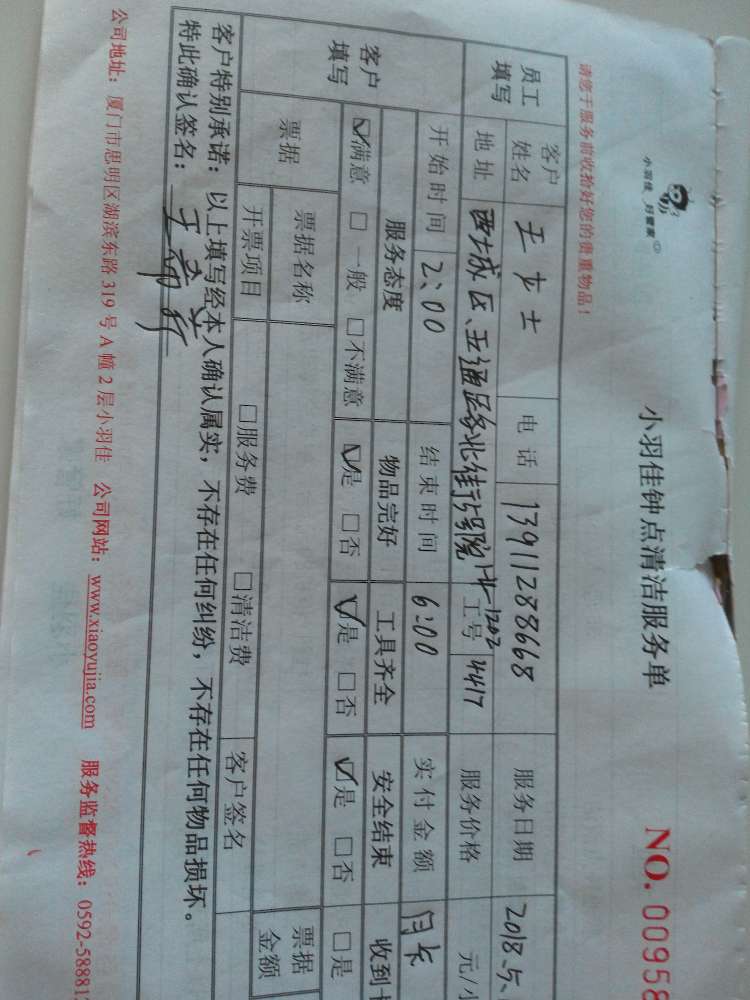 小羽佳 好管家
小羽佳钟点清洁服务单
NO. 00958
请您于服务前收拾好您的贵重物品！
员工填写 客户姓名 王女士 电话 13911288668 服务日期 2018.5.
地址 西城区、玉通路北街 号院 1202 工号 4417 服务价格 元/小
客户填写 开始时间 2:00 结束时间 6:00 实付金额 月卡
服务态度 物品完好 工具齐全 安全结束 收到卡
☑满意 □一般 □不满意 ☑是 □否 ☑是 □否 ☑是 □否 □是
票据 票据名称 票据金额
开票项目 □服务费 □清洁费 客户签名
客户特别承诺：以上填写经本人确认属实，不存在任何纠纷，不存在任何物品损坏。
特此确认签名：
公司地址：厦门市思明区湖滨东路 319 号 A 幢 2 层小羽佳 公司网站：www.xiaoyujia.com 服务监督热线：0592-58881